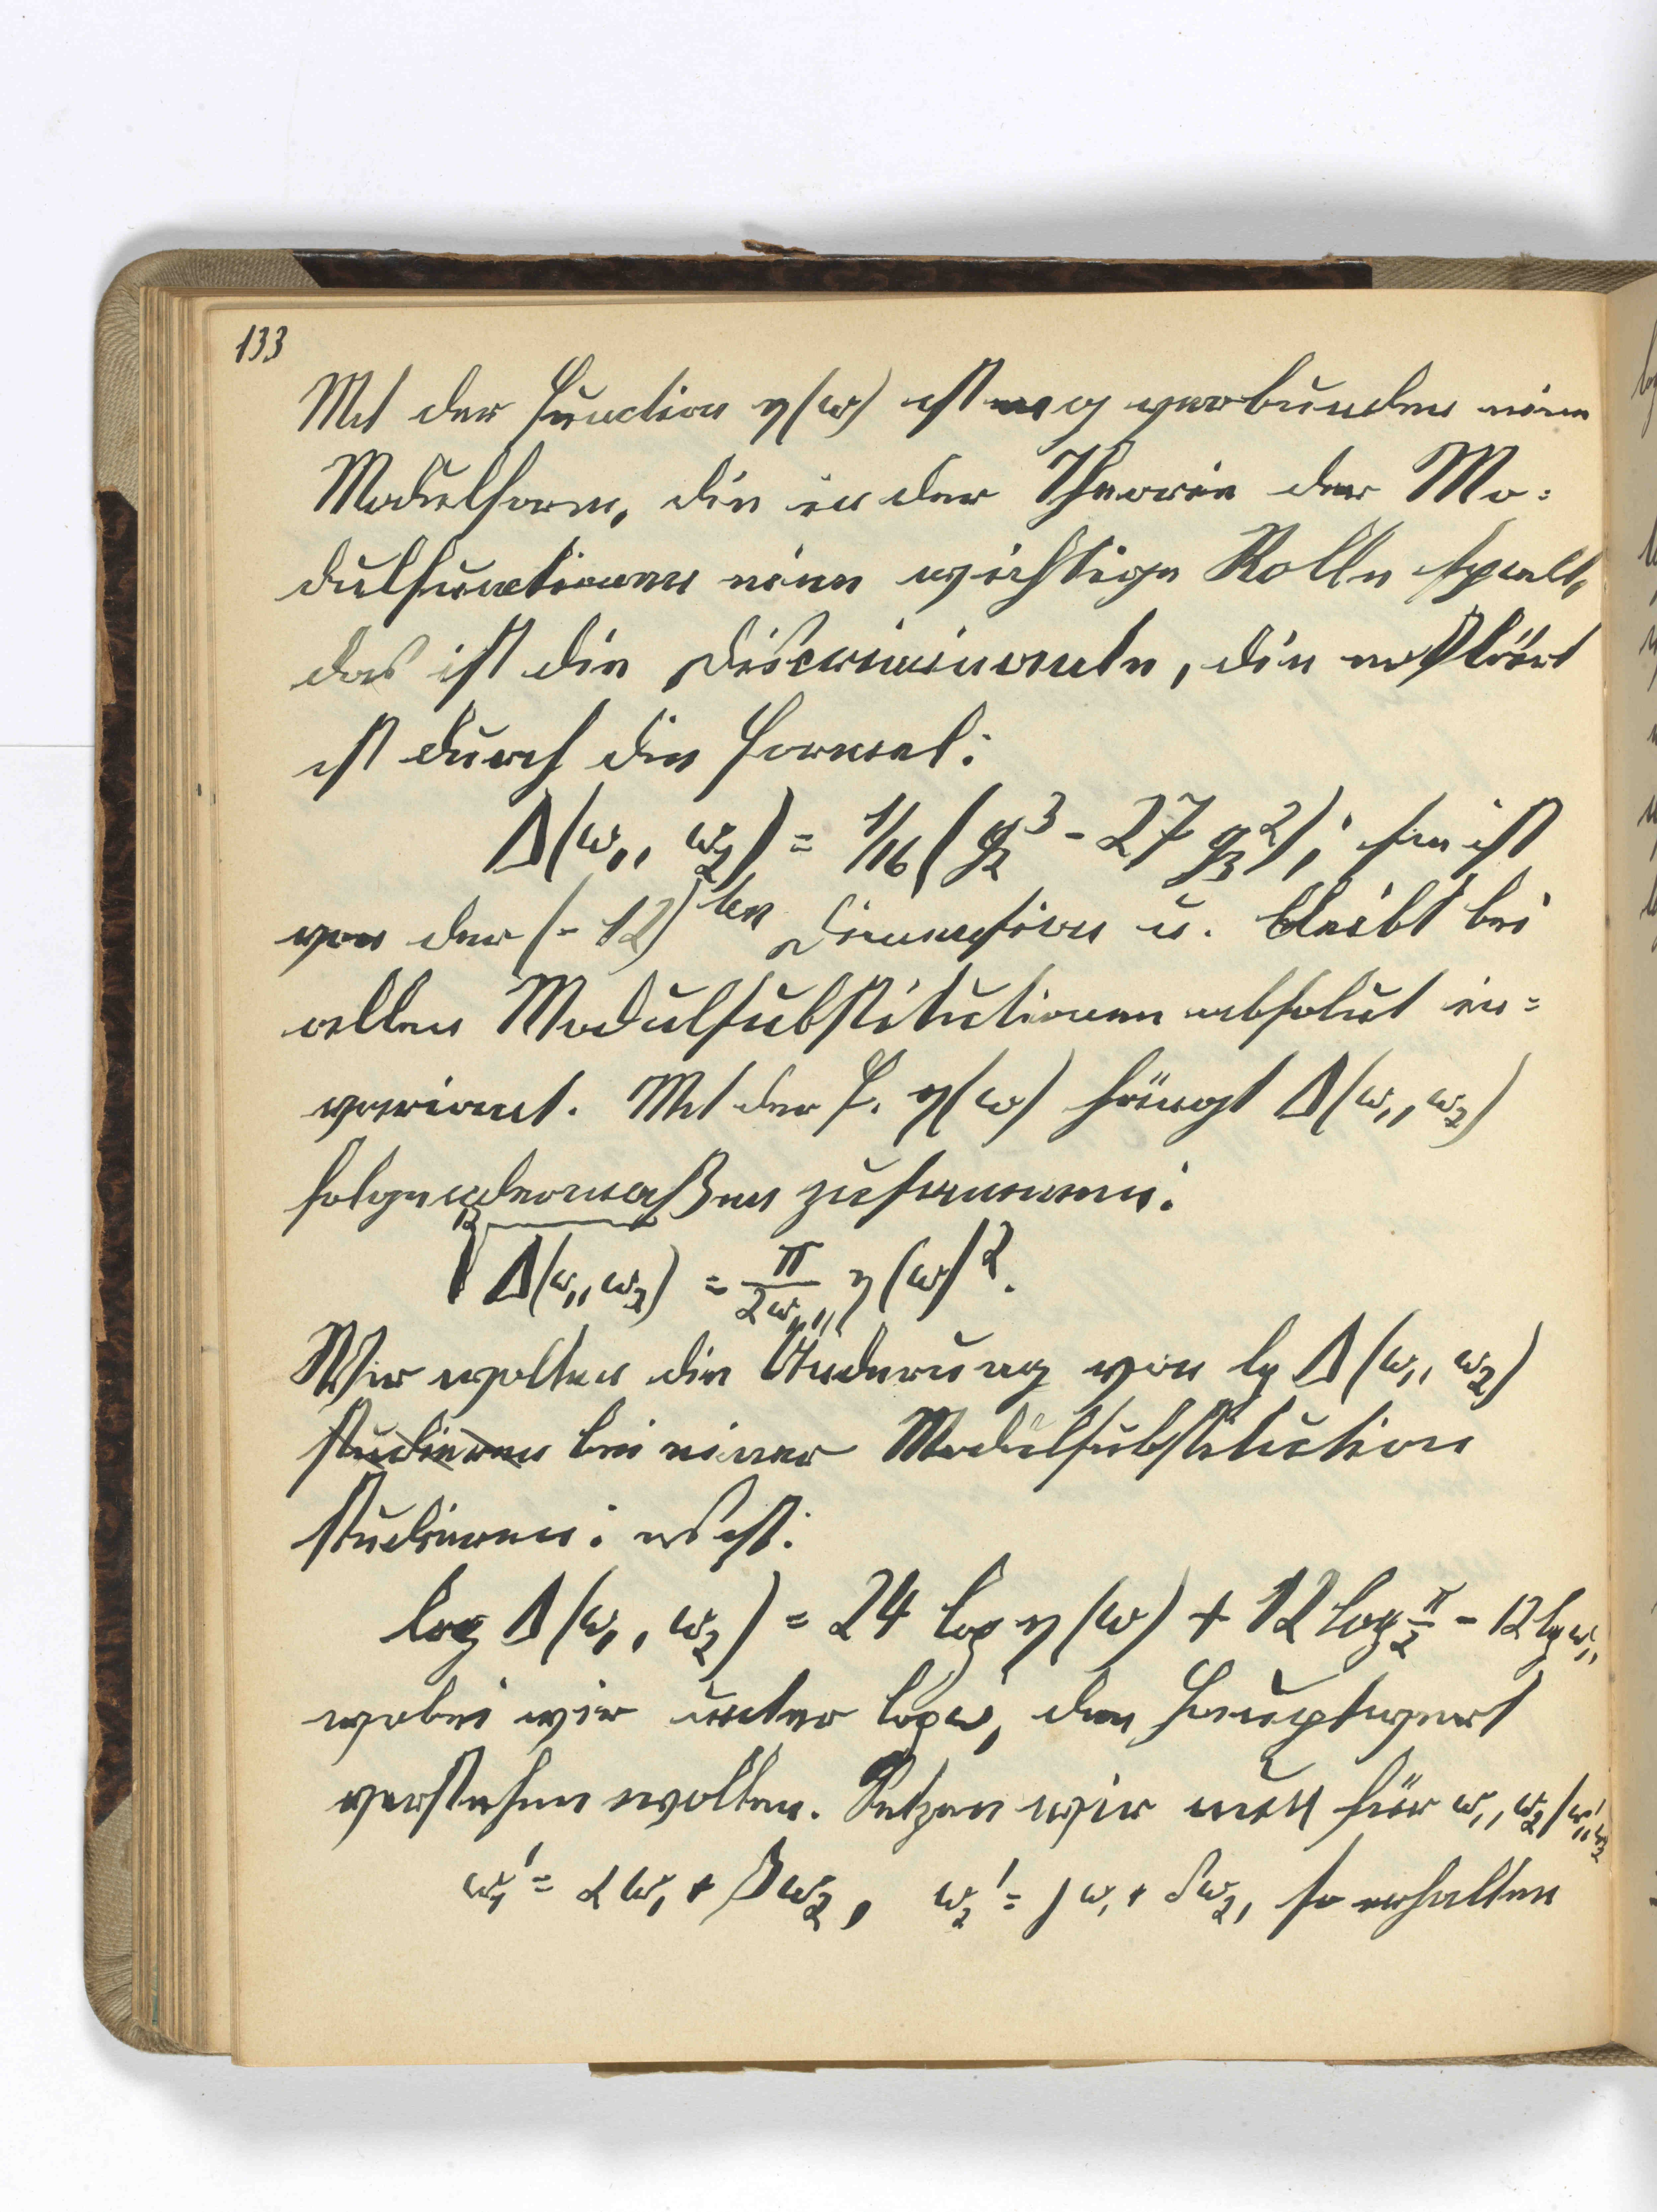 133
Mit der Function η(ω) ist eng verbunden eine
Modulform, die in der Theorie der Mo-
dulfunctionen eine wichtige Rolle spielt,
das ist die Discriminante, die erklärt
ist durch die Formel:
Δ(ω₁, ω₂) = 1/16 (g₂³ - 27 g₃²); sie ist
von der (-12)ten Dimension u. bleibt bei
allen Modulsubstitutionen absolut in=
variant. Mit der F. η(ω) hängt Δ(ω₁, ω₂)
folgendermaßen zusammen:
¹²√Δ(ω₁, ω₂) = π/2ω₁ η(ω)².
Wir wollen die Änderung von lg Δ(ω₁, ω₂)
studieren bei einer Modulsubstitution
studieren: es ist:
log Δ(ω₁, ω₂) = 24 log η(ω) + 12 log π/2 - 12 lg ω₁,
wobei wir unter log ω₁ den Hauptwert
verstehen wollen. Setzen wir nun für ω₁, ω₂ | ω₁', ω₂'
ω₁' = αω₁ + βω₂, ω₂' = γω₁ + δω₂, so erhalten